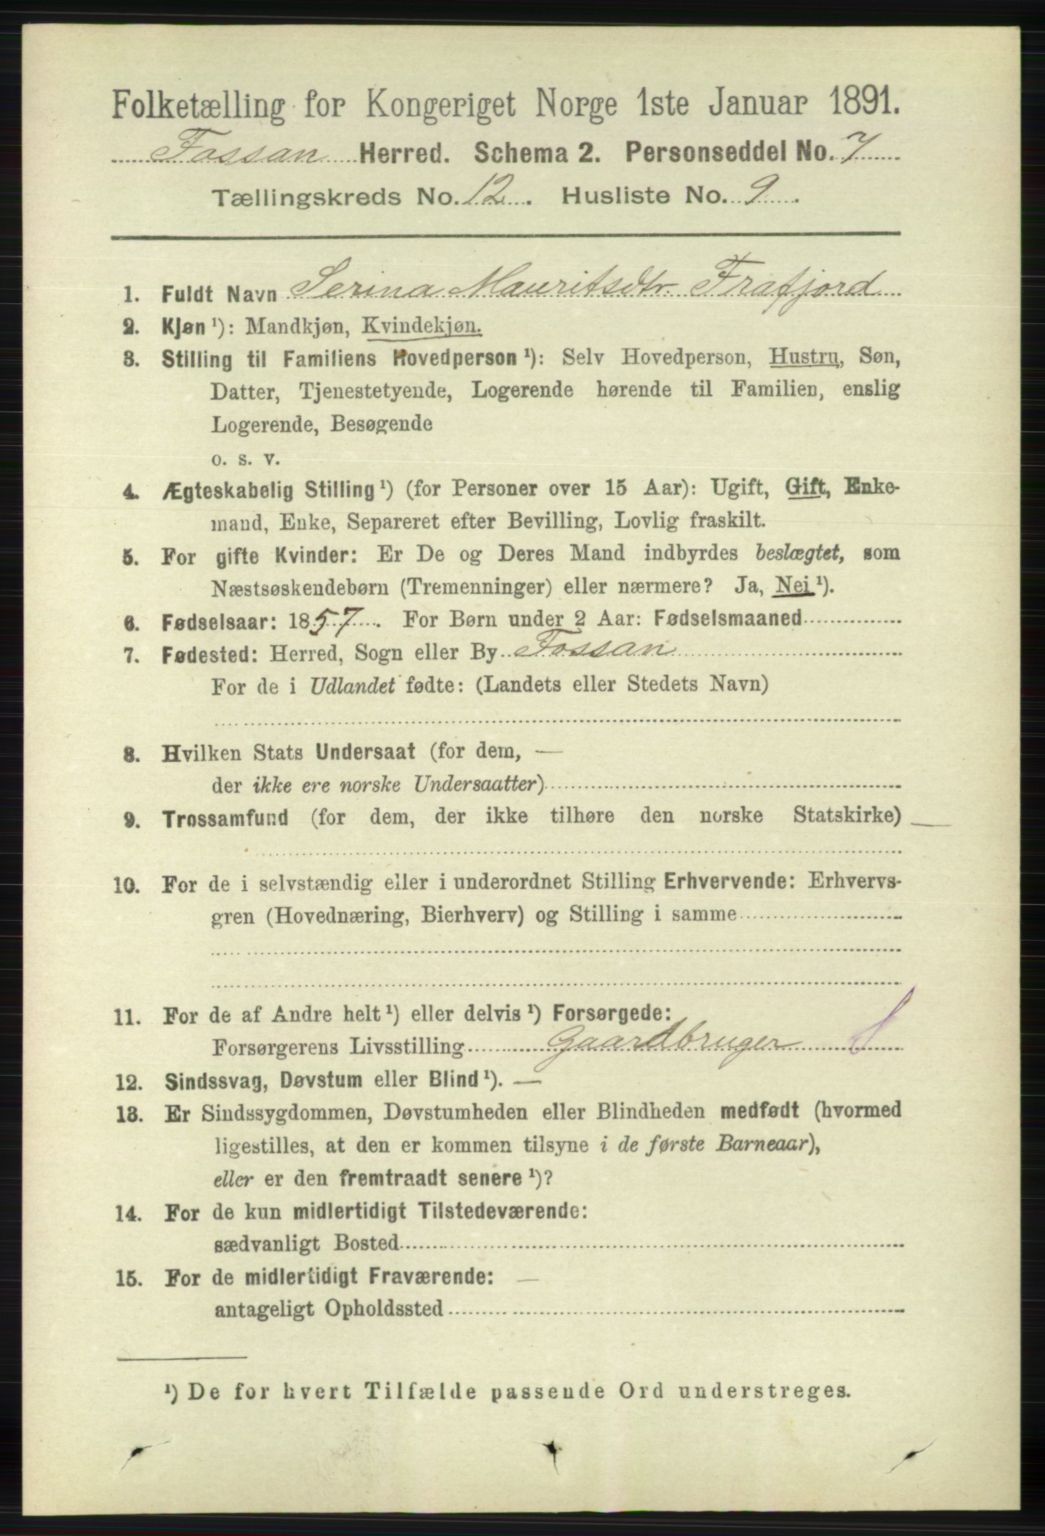 Folketælling for Kongeriget Norge 1ste Januar 1891.
Fossan Herred. Schema 2. Personseddel No. 7
Tællingskreds No. 12. Husliste No. 9.
1. Fuldt Navn Serina Mauritsdtr. Frafjord
2. Kjøn ¹): Mandkjøn, Kvindekjøn.
3. Stilling til Familiens Hovedperson ¹): Selv Hovedperson, Hustru, Søn,
Datter, Tjenestetyende, Logerende hørende til Familien, enslig
Logerende, Besøgende
o. s. v.
4. Ægteskabelig Stilling ¹) (for Personer over 15 Aar): Ugift, Gift, Enke-
mand, Enke, Separeret efter Bevilling, Lovlig fraskilt.
5. For gifte Kvinder: Er De og Deres Mand indbyrdes beslægtet, som
Næstsøskendebørn (Tremenninger) eller nærmere? Ja, Nei ¹).
6. Fødselsaar: 1857. For Børn under 2 Aar: Fødselsmaaned
7. Fødested: Herred, Sogn eller By Fossan
For de i Udlandet fødte: (Landets eller Stedets Navn)
8. Hvilken Stats Undersaat (for dem, —
der ikke ere norske Undersaatter)
9. Trossamfund (for dem, der ikke tilhøre den norske Statskirke) —
10. For de i selvstændig eller i underordnet Stilling Erhvervende: Erhvervs-
gren (Hovednæring, Bierhverv) og Stilling i samme
11. For de af Andre helt ¹) eller delvis ¹) Forsørgede:
Forsørgerens Livsstilling Gaardbruger
12. Sindssvag, Døvstum eller Blind ¹). —
13. Er Sindssygdommen, Døvstumheden eller Blindheden medfødt (hvormed
ligestilles, at den er kommen tilsyne i de første Barneaar),
eller er den fremtraadt senere ¹)?
14. For de kun midlertidigt Tilstedeværende:
sædvanligt Bosted
15. For de midlertidigt Fraværende: —
antageligt Opholdssted
¹) De for hvert Tilfælde passende Ord understreges.